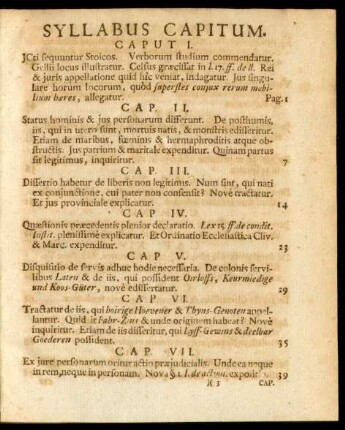 SYLLABUS CAPITUM.
CAPUT I.
JCti sequuntur Stoicos. Verborum studium commendatur.
Gellii locus illustratur. Celsus græcissat in l. 17. ff. de ll. Rei
& juris appellatione quid hîc veniat, indagatur. Jus singu-
lare horum locorum, quòd superstes conjux rerum mobi-
lium hæres, allegatur. Pag. 1
CAP. II.
Status hominis & jus personarum differunt. De posthumis,
iis, qui in utero sunt, mortuis natis, & monstris edisseritur.
Etiam de maribus, fœminis & hermaphroditis atque ob-
stetricis. Jus patrium & maritale expenditur. Quinam partus
sit legitimus, inquiritur. 7
CAP. III.
Dissertio habetur de liberis non legitimis. Num sint, qui nati
ex conjunctione, cui pater non consensit? Novè tractatur.
Et jus provinciale explicatur. 14
CAP. IV.
Quæstionis præcedentis plenior declaratio. Lex 15. ff. de condit.
Instit. plenissimè explicatur. Et Ordinatio Ecclesiastica Cliv.
& Marc. expenditur. 23
CAP. V.
Disquisitio de servis adhuc hodie necessaria. De colonis servi-
libus Laten & de iis, qui possident Keurmiedige
und Koos-Güter, novè edissertatur. 29
CAP. VI.
Tractatur de iis, qui hoirige Hoevener & Thyns-Genoten appel-
lantur. Quid sit Fahr-Zins & unde originem habeat? Novè
inquiritur. Etiam de iis disseritur, qui Lyff-Gewins & deelbar
Goederen possident. 35
CAP. VII.
Ex jure personarum oritur actio præjudicialis. Unde ea neque
in rem, neque in personam. Nova §. 1. I. de action. exposit. 39
CAP.